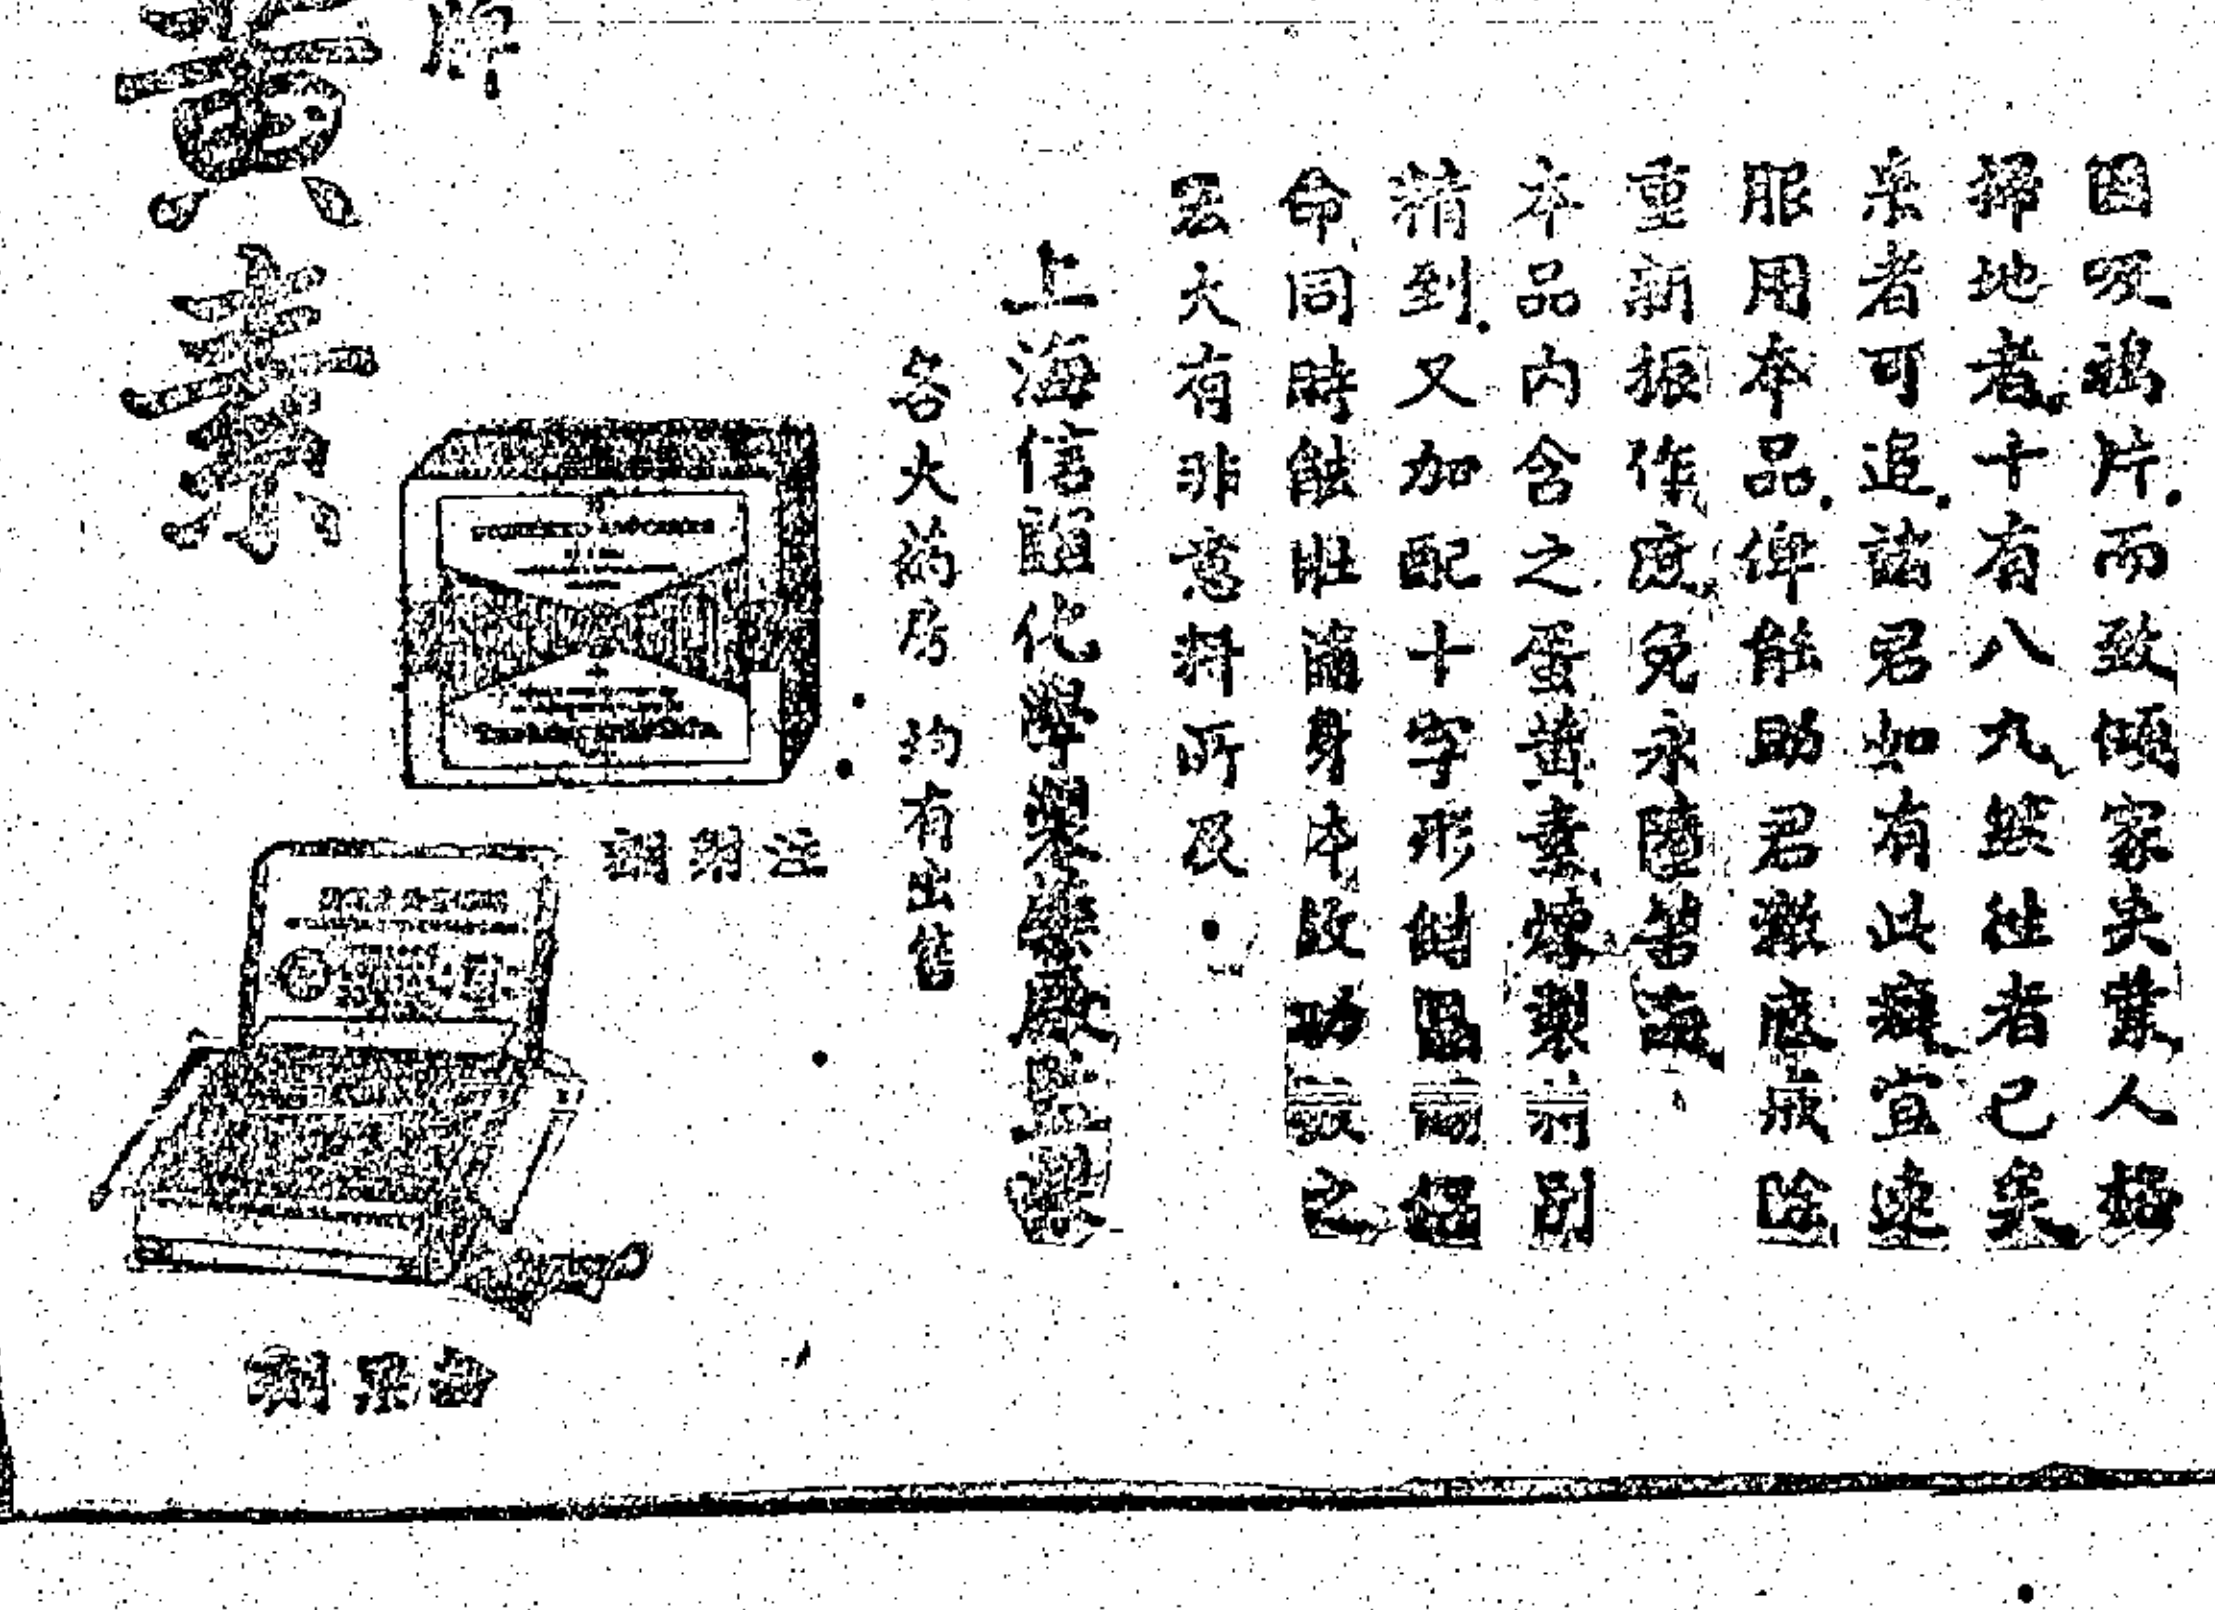 因吸鴉片．而致傾家失業、人格
掃地者、十有八九、然往者已矣、
來者可追．諸君如有此癮、宜速
服用本品．俾能助君澈底戒除
重新振作、庶免永墮苦海、
本品內含之蛋黃素、煉製特別
精到．又加配十字形
命、同時能壯 身本 功效之
宏大有非意料所及．
上海信誼化學製藥廠監製
各大藥房均有出售
牌
黃素
注射劑
劑